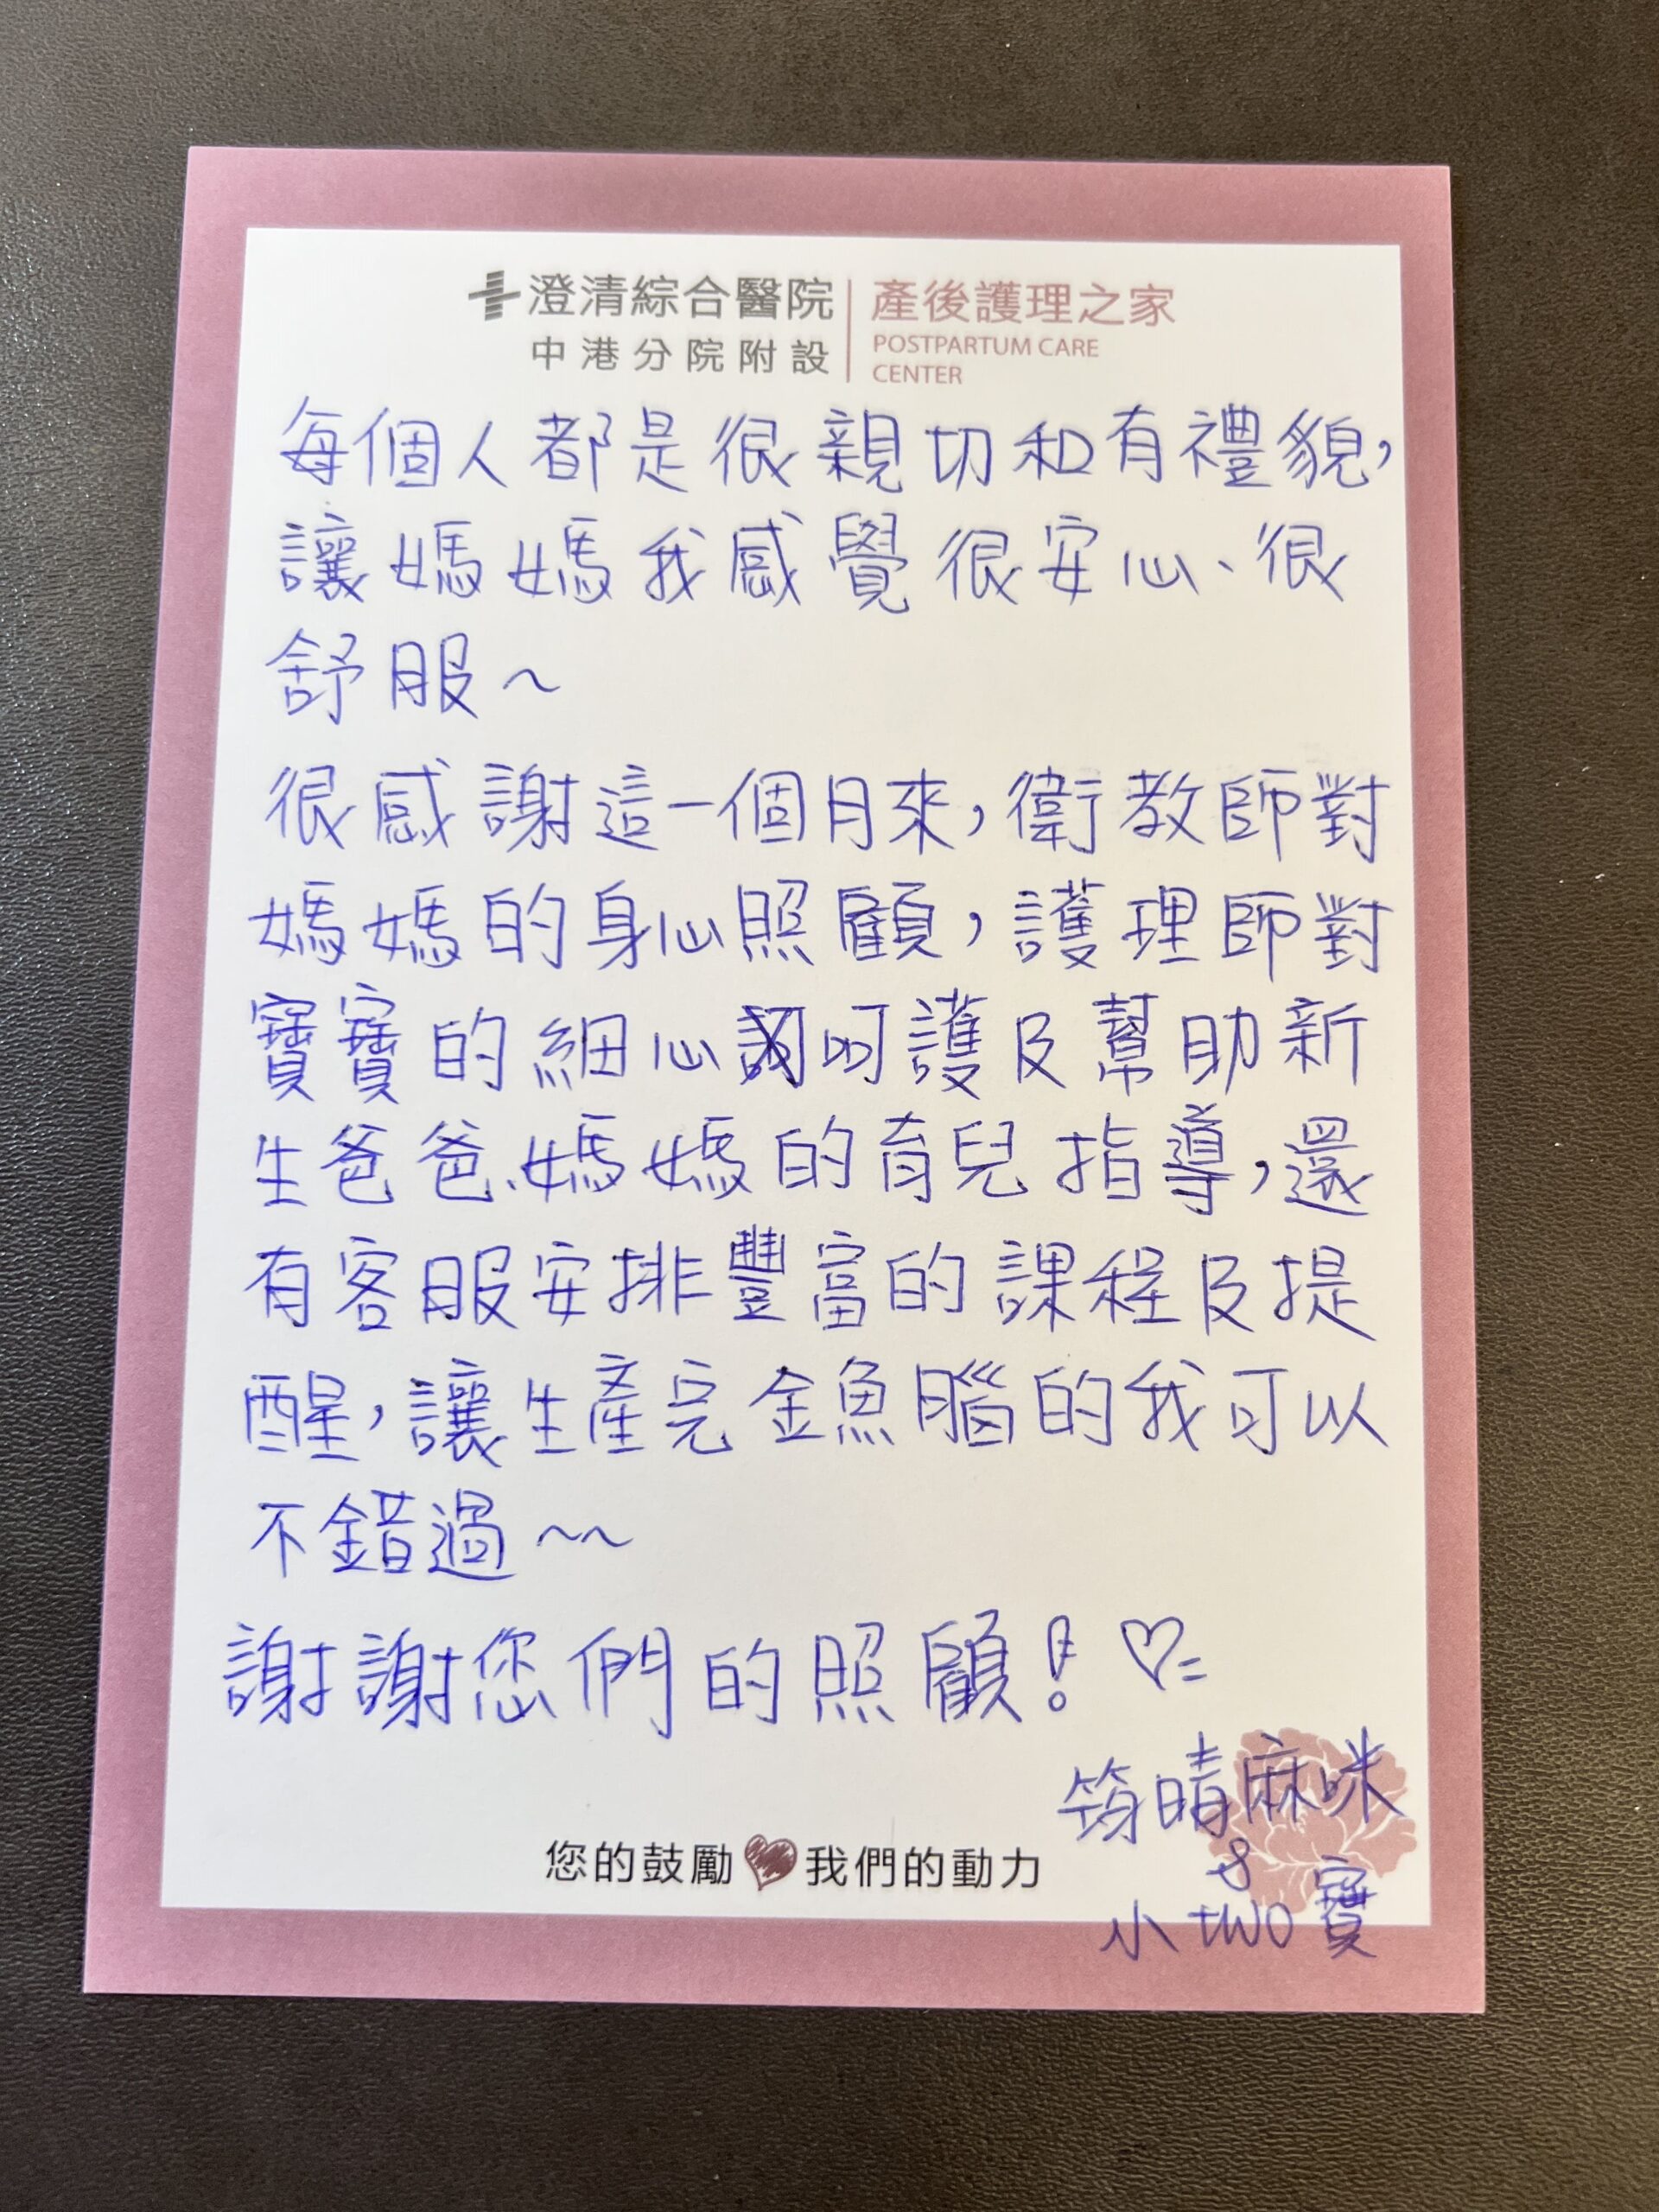 澄清綜合醫院
中港分院附設
產後護理之家
POSTPARTUM CARE
CENTER
每個人都是很親切和有禮貌，
讓媽媽我感覺很安心、很
舒服～
很感謝這一個月來，衛教師對
媽媽的身心照顧，護理師對
寶寶的細心呵護及幫助新
生爸爸、媽媽的育兒指導，還
有客服安排豐富的課程及提
醒，讓生產完金魚腦的我可以
不錯過～～
謝謝您們的照顧！♡
筠晴麻咪
&
小two寶
您的鼓勵 我們的動力